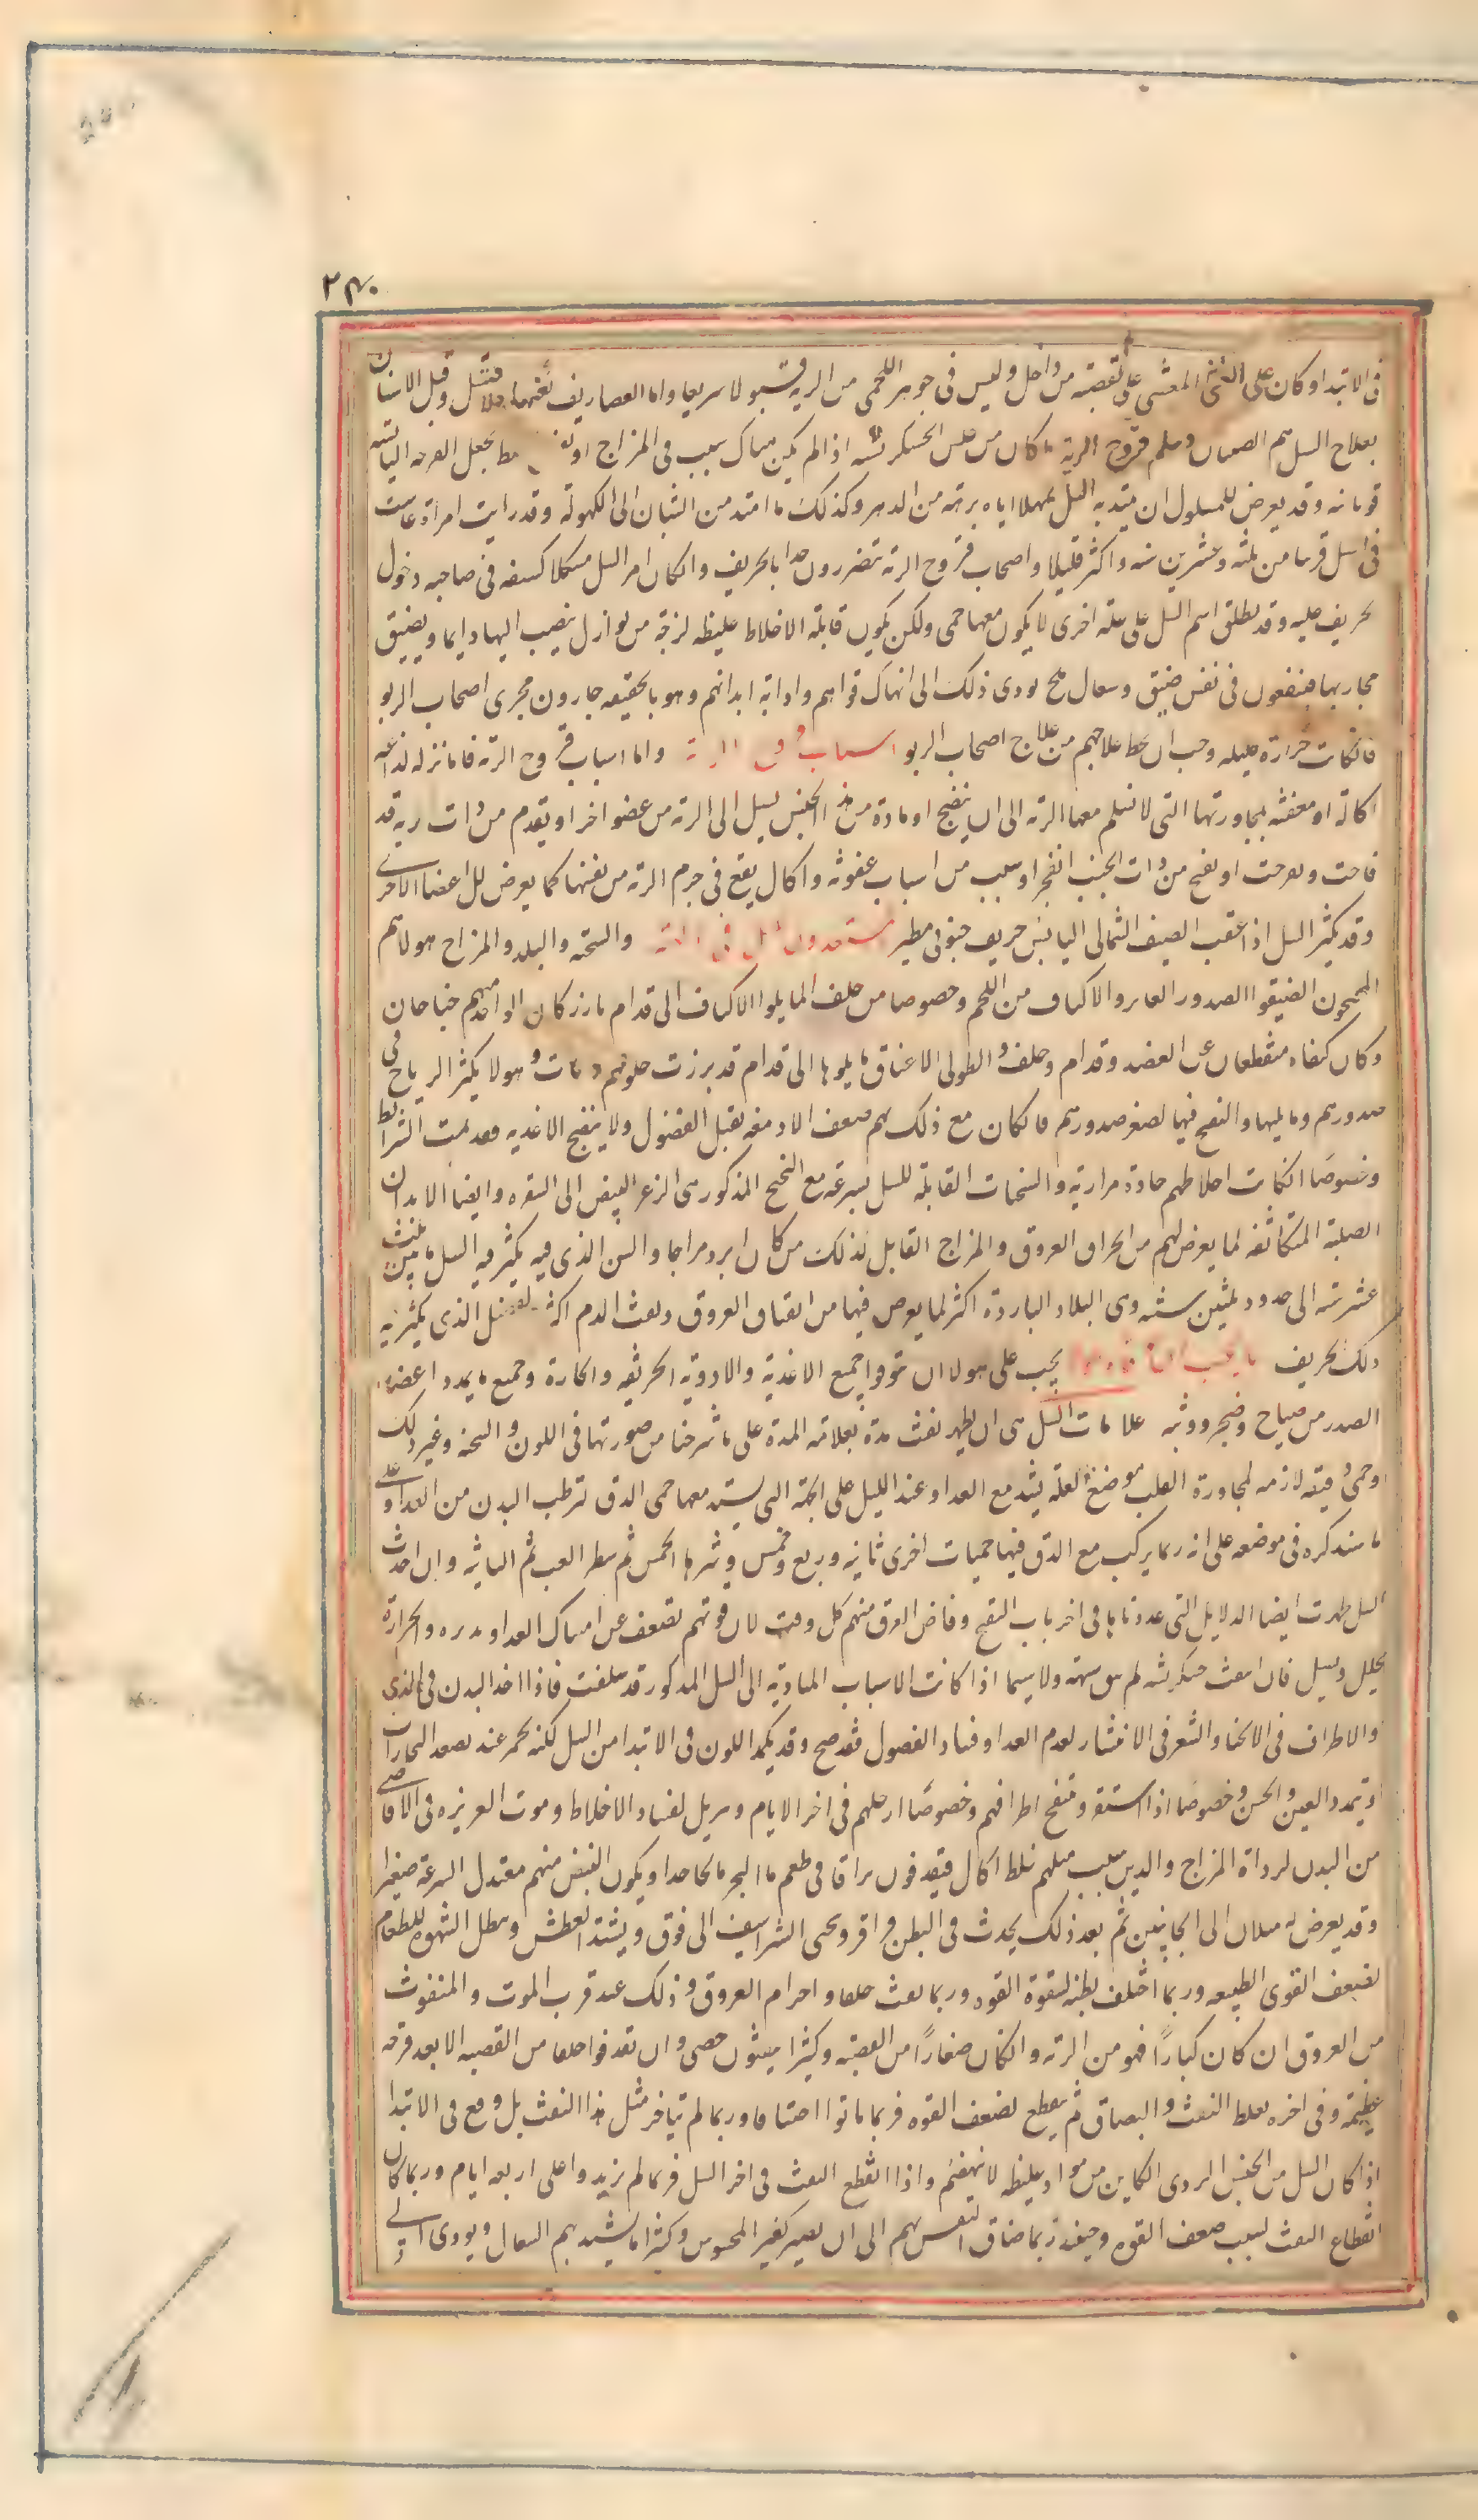 ٢٣٠
فى الابتدا وكان على الشئ المغشى على القصبة من داخل وليس فى جوهر اللحمى من الرية قبولا سريعا واما العصاريف نفسها فلا تقبل وقبل الاسنان
بعلاج السل هم الصبيان واسلم قروح الرية ما كان من جنس الخشكريشه اذا لم يكن هناك سبب فى المزاج او يجعل القرحه اليابسه
قوبائيه وقد يعرض للمسلول ان يمتد به السل ممهلا اياه برهة من الدهر وكذلك ما امتد من الشباب الى الكهولة وقد رايت امراة عاشت
فى السل قريبا من ثلثه وعشرين سنه واكثر قليلا واصحاب قروح الرية يتضررون جدا بالخريف واذا كان امر السل مشكلا كشفه فى صاحبه دخول
الخريف عليه وقد يطلق اسم السل على علة اخرى لا يكون معها حمى ولكن يكون قابلة لاخلاط غليظه لزجة من نوازل ينصب اليها دايما ويضيق
مجاريها فيقعون فى نفس ضيق وسعال ملح يودى ذلك الى انهاك قواهم واذابة ابدانهم وهو بالحقيقه جارون مجرى اصحاب الربو
فان كانت حرارة قليله وجب ان يخلط علاجهم من علاج اصحاب الربو اسباب قروح الرية واما اسباب قروح الرية فاما نزله لذاعه
اكالة او معفنه بمجاورتها التى لا تسلم معها الرية الى ان ينضج او مادة من هذا الجنس يسيل الى الرية من عضو اخر او يقدم من ذات ريه قد
قاحت وتقرحت او تقيح من ذات الجنب انفجر او سبب من اسباب عفونه واكال يقع فى جرم الرية من نفسها كما يعرض للاعضا الاخرى
وقد يكثر السل اذا عقب الصيف الشمالى اليابس خريف جنوبى مطير المستعدون للسل فى والسحنه والبلد والمزاج هولا هم
المجنحون الضيقوا الصدور العاروا الاكتاف من اللحم وخصوصا من خلف المايلوا الاكتاف الى قدام بارز كان لواحد منهم جناحان
وكان كتفاه منقطعان عن العضد وقدام وخلف والطولى الاعناق مايلوها الى قدام قد برزت حلوقهم ونات وهولا يكثر الرياح فى
صدورهم وما يليها والنفخ فيها لصغر صدورهم فان كان مع ذلك بهم ضعف الادمغه يقبل الفضول ولا ينضج الاغذيه فقد تمت الشرايط
وخصوصا ان كانت اخلاطهم حادة مرارية والسحنات القابلة للسل بسرعة مع التجنح المذكور هى الزعر البيض الى الشقره وايضا الابدان
الصلبة المتكاثفه لما يعرض لهم من انخراق العروق والمزاج القابل لذلك من كان ابرد مزاجا والسن الذى فيه يكثر فيه السل ما بين ثمنث
عشر سنه الى حدود ثلثين سنه وهى البلاد الباردة اكثر لما يعرض فيها من انفتاق العروق ونفث الدم اكثر الفصل الذى يكثر فيه
ذلك الخريف يجب على هولا ان يتوقوا جميع الاغذية والادوية الحريفه والحارة وجميع ما يمدد اعضاء
الصدر من صياح وضجر ووثبه علامات السل هى ان يظهر نفث مدة بعلامة المدة على ما شرحنا من صورتها فى اللون والسحنه وغير ذلك
وحمى دقيه لازمه لمجاورة القلب موضع العله يشتد مع الغدا وعند الليل على الجهة التى يشتد معها حمى الدق لترطب البدن من الغدا على
ما سنذكره فى موضعه على انه ربما تركب مع الدق فيها حميات اخرى نائبه وربع وخمس وشرها الخمس ثم شطر الغب ثم النائبه وان احدث
السل ظهرت ايضا الدلايل التى عددناها فى اخر باب التقيح وفاض العرق منهم كل وقت لان قوتهم تضعف عن امساك الغدا وتدبيره والحرارة
يحلل ويسيل فان انتفث خشكريشه لم يبق شبهة ولا سيما اذا كانت الاسباب المادية الى السل المذكور قد سلفت فاذا اخذ البدن فى الذى
والاطراف فى الانحنا والشعر فى الانتثار لعدم الغدا وفساد الفضول فقد صح وقد يكمد اللون فى الابتدا من السل لكنه يحمر عند تصعد البخارات
ويتمدد العين والحسن وخصوصا اذا استقر وتنتفخ اطرافهم وخصوصا ارجلهم فى اخر الايام وتترهل لفساد الاخلاط وموت الغريزه فى الاقاصى
من البدن لرداة المزاج والذين سبب سلهم خلط اكال فيقذفون براقا فى طعم ماء البحر مالحا جدا ويكون النبض منهم معتدل السرعة صغيرا
وقد يعرض له ميلان الى الجانبين ثم بعد ذلك يحدث فى البطن قراقر وينحنى الشراسيف الى فوق ويشتد العطش ويبطل الشهوة للطعام
لضعف القوى الطبيعه وربما اختلف بطنه لسقوط القوه وربما نفث خلطا واجرام العروق وذلك عند قرب الموت والمنفوث
من العروق ان كان كبارا فهو من الرية وان كان صغارا من القصبة وكثيرا ينفثون حصى وان تقذفوا حلقا من القصبه الا بعد قرحه
عظيمة وفى اخره يغلظ النفث والبصاق ثم ينقطع لضعف القوه فربما ماتوا اختناقا وربما لم يتاخر مثل هذا النفث بل وقع فى الابتدا
اذا كان السل من الجنس الردى الكاين من مواد غليظه لا ينهضم واذا انقطع النفث فى اخر السل فربما لم يزيدوا على اربعه ايام وربما كان
انقطاع النفث لسبب ضعف القوه وحينئذ ربما ضاق النفس بهم الى ان يصير كغير المحسوس وكثيرا ما يشتد بهم السعال ويودى الى